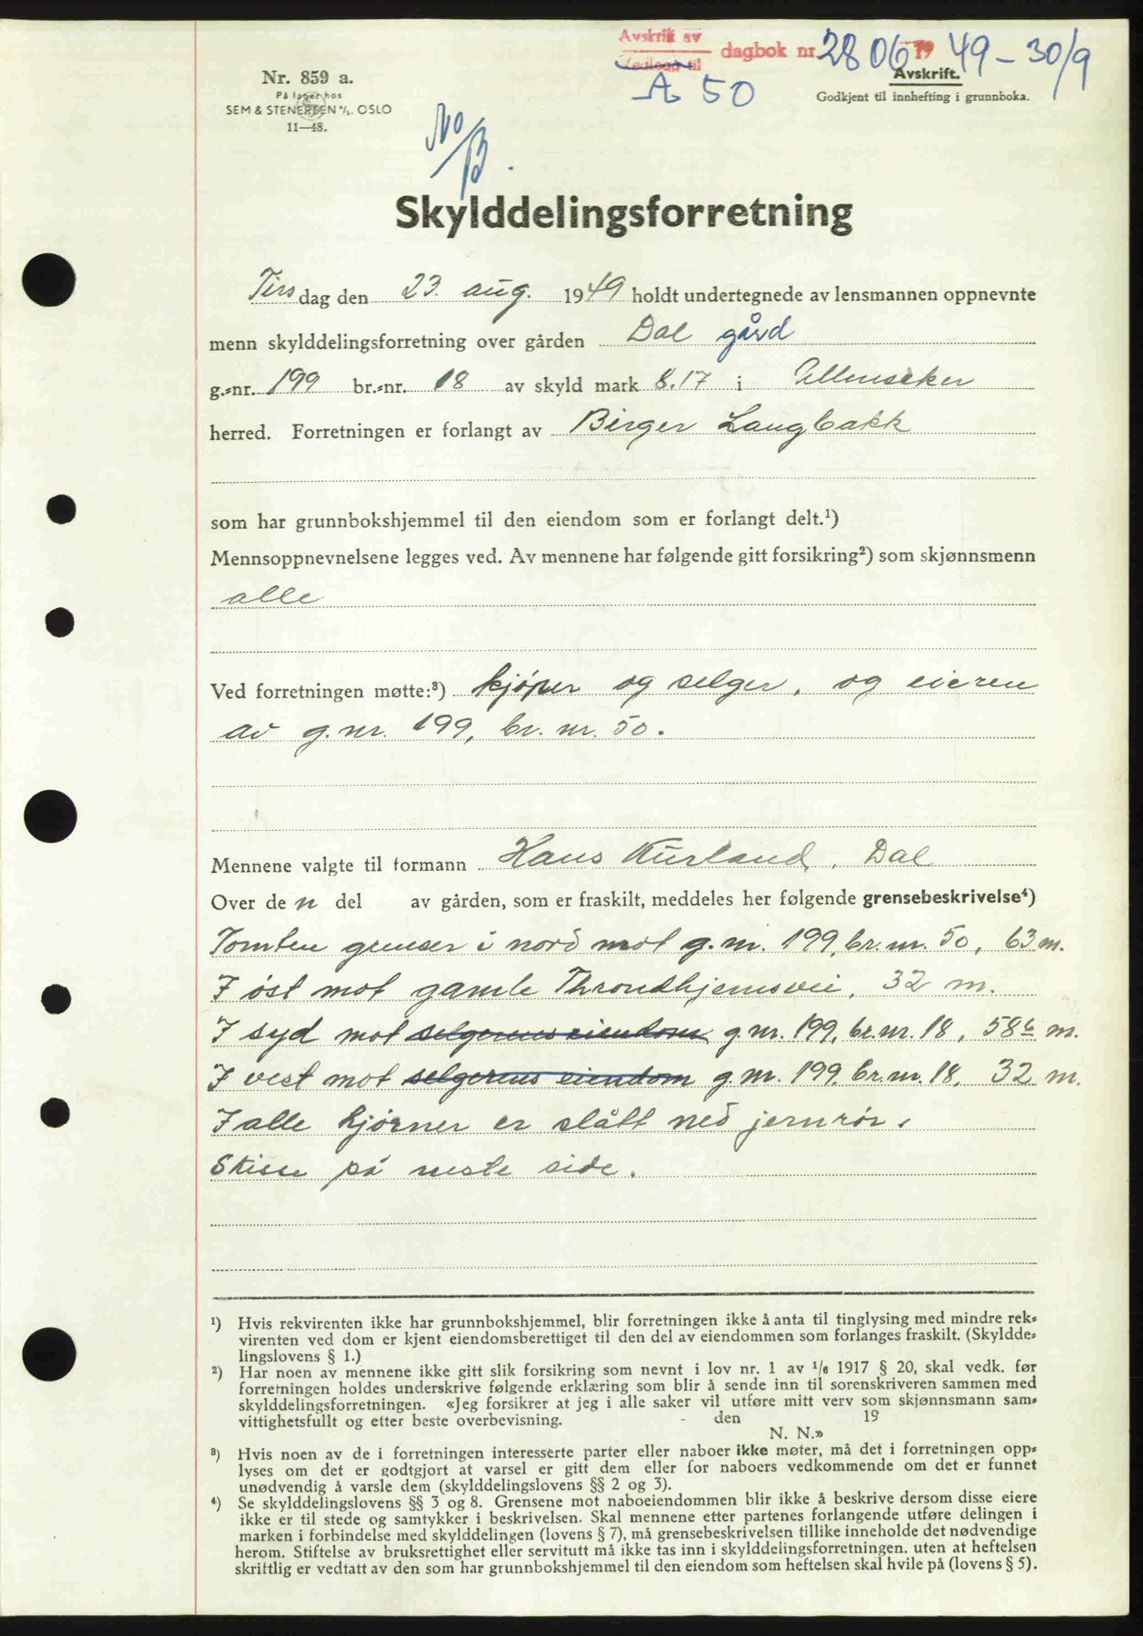 Avskrift av
Vedlegg til
dagbok nr. 2806 19 49-30/9
A 50
Avskrift.
Godkjent til innhefting i grunnboka.
Nr. 859 a.
På lager hos
SEM & STENERSEN A/S. OSLO
11—48.
No/B.
Skylddelingsforretning
Tirsdag den 23. aug. 1949 holdt undertegnede av lensmannen oppnevnte
menn skylddelingsforretning over gården Dal gård
g.-nr. 199 br.-nr. 18 av skyld mark 8.17 i Ullensaker
herred. Forretningen er forlangt av Birger Langbakk
som har grunnbokshjemmel til den eiendom som er forlangt delt.¹)
Mennsoppnevnelsene legges ved. Av mennene har følgende gitt forsikring²) som skjønnsmenn
alle
Ved forretningen møtte:³) kjøper og selger, og eieren
av g.nr. 199, br. nr. 50.
Mennene valgte til formann Hans Kurland, Dal
Over den del av gården, som er fraskilt, meddeles her følgende grensebeskrivelse⁴)
Tomten grenser i nord mot g.nr. 199, br. nr. 50, 63 m.
I øst mot gamle Throndhjemsvei, 32 m.
I syd mot selgerens eiendom g nr. 199, br.nr. 18, 58⁶ m.
I vest mot selgerens eiendom g nr. 199, br.nr. 18, 32 m.
I alle hjørner er slått ned jernrør.
Skisse på neste side.
¹) Hvis rekvirenten ikke har grunnbokshjemmel, blir forretningen ikke å anta til tinglysing med mindre rek-
virenten ved dom er kjent eiendomsberettiget til den del av eiendommen som forlanges fraskilt. (Skyldde-
lingslovens § 1.)
²) Har noen av mennene ikke gitt slik forsikring som nevnt i lov nr. 1 av 1/6 1917 § 20, skal vedk. før
forretningen holdes underskrive følgende erklæring som blir å sende inn til sorenskriveren sammen med
skylddelingsforretningen. «Jeg forsikrer at jeg i alle saker vil utføre mitt verv som skjønnsmann sam-
vittighetsfullt og etter beste overbevisning. den 19
N. N.»
³) Hvis noen av de i forretningen interesserte parter eller naboer ikke møter, må det i forretningen opp-
lyses om det er godtgjort at varsel er gitt dem eller for naboers vedkommende om det er funnet
unødvendig å varsle dem (skylddelingslovens §§ 2 og 3).
⁴) Se skylddelingslovens §§ 3 og 8. Grensene mot naboeiendommen blir ikke å beskrive dersom disse eiere
ikke er til stede og samtykker i beskrivelsen. Skal mennene etter partenes forlangende utføre delingen i
marken i forbindelse med skylddelingen (lovens § 7), må grensebeskrivelsen tillike inneholde det nødvendige
herom. Stiftelse av bruksrettighet eller servitutt må ikke tas inn i skylddelingsforretningen. uten at heftelsen
skriftlig er vedtatt av den som har grunnbokshjemmel til den eiendom som heftelsen skal hvile på (lovens § 5).